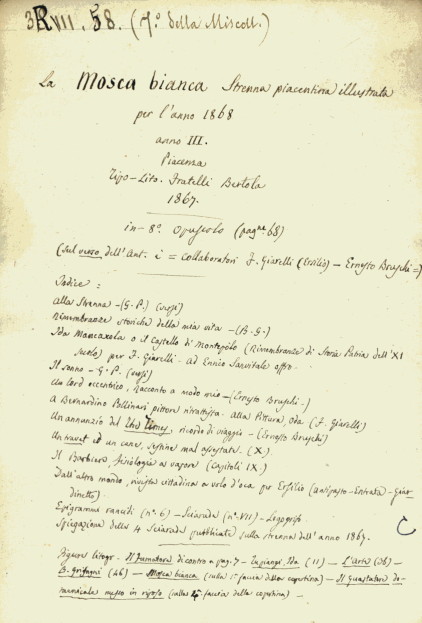 3RVII. 58. (7º. della Miscell.)
La Mosca bianca Strenna piacentina illustrata
per l'anno 1868
anno III.
Piacenza
Tipo-Lito. Fratelli Bertola
1867.
in-8º. Opuscolo (pagne. 68)
(sul verso dell'Ant. i = collaboratori F. Giarelli (Ersilio) - Ernesto Bruschi =)
Indice:
Alla Strenna - (G. P.) (versi)
Rimembranze storiche della mia vita - (B. G.)
Ida Mancaxola o il Castello di Montepolo (Rimembranze di Storia Patria dell'XI
secolo) per F. Giarelli - ad Enrico Sanvitale offro.
Il sonno - G. P. (versi)
Un lord eccentrico, Racconto a modo mio - (Ernesto Bruschi.)
A Bernardino Pollinari pittore ritrattista. Alla Pittura, Oda (F. Giarelli)
Un annunzio del Times, ricordo di viaggio - (Ernesto Bruschi)
Un travet ed un cane, sestine mal assestate. (X.)
Il Barbiere, fisiologia a vapore (Capitoli IX.)
Dall'altro mondo, rivista cittadina a volo d'oca per Ersilio (antipasto - Entrata - Giar-
dinetto)
Epigrammi rancidi (nº. 6) - Sciarada (nº. VII) - Logogrifo
Spiegazione delle 4 Sciarade pubblicate sulla strenna dell'anno 1867.
Figure litogr. - Il fumatore di contro a pag. 7 - Ida (11) - L'arte (36) -
B. Grifagni (46) - Mosca bianca (sulla 1ª faccia della copertina) - Il Guastatore do-
maniale messo in riposo (sulla 4ª faccia della copertina) -